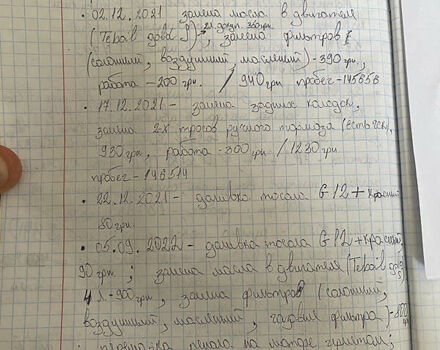 • 02.12.2021 замена масла в двигателе
2л дозал. 350грн.
(Teboil gold-S), замена фильтров
(салонний, воздушний, масляний)-390грн,
работа -200 грн. / 940 грн пробег -145658
• 17.12.2021- замена задних колодок,
замина 2-х тросов ручного тормоза (есть чек),
930грн, работа -300грн /1230грн.
пробег -146514
• 22.12.2021- доливка тосола G12+ Красний
80грн.
• 05.09.2022- доливка тосола G12+красний,
90грн.; замена масла в двигателе (Teboil gold
4л -900грн, замена фильтров (салонний,
воздушний, масляний, газовые фильтра)-850